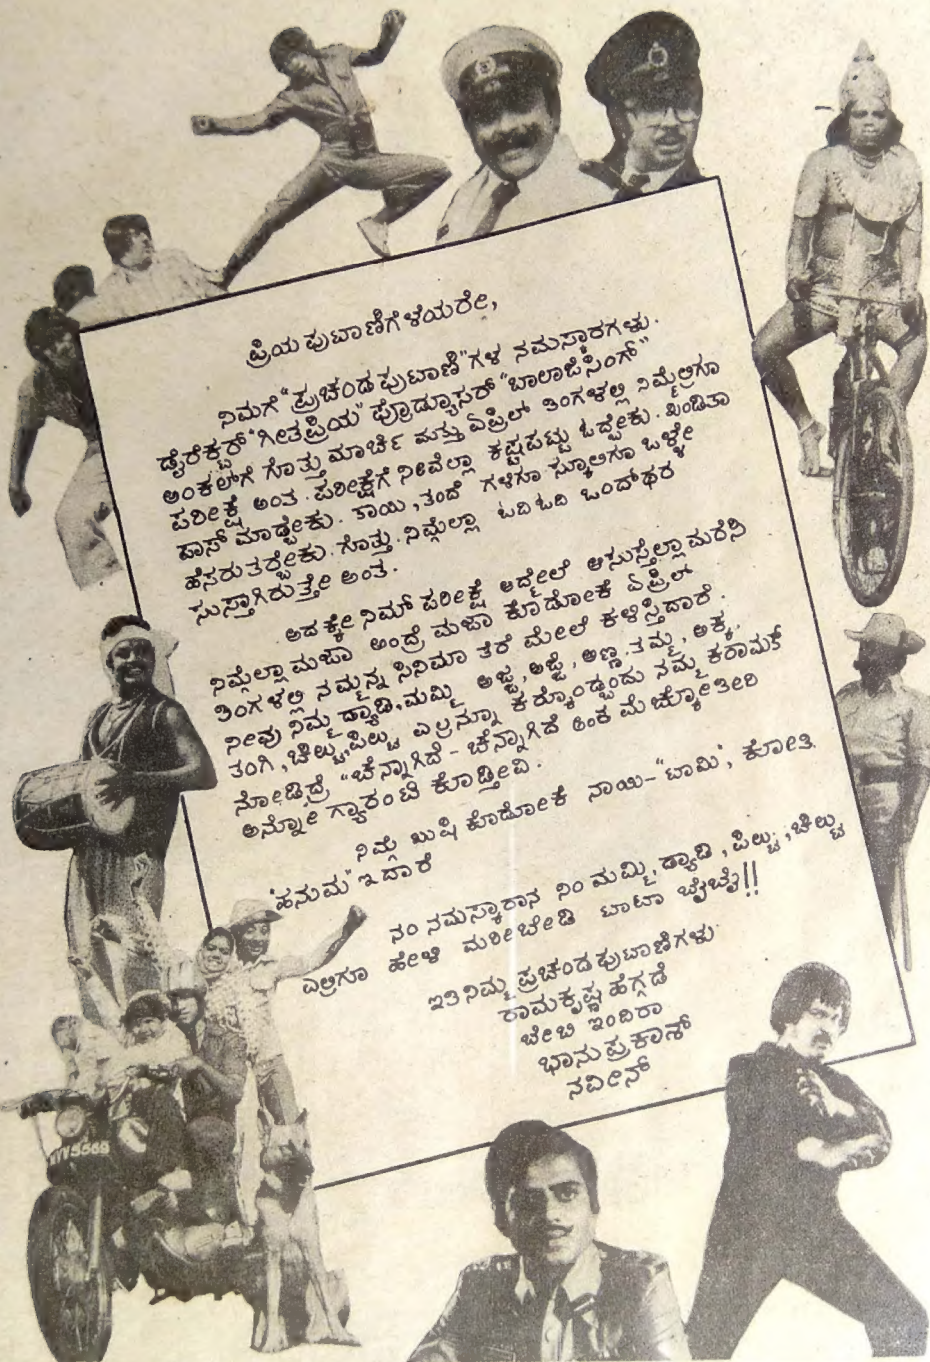 ಪ್ರಿಯ ಪುಟಾಣಿಗೆಳೆಯರೇ,
ನಿಮಗೆ "ಪ್ರಚಂಡ ಪುಟಾಣಿ"ಗಳ ನಮಸ್ಕಾರಗಳು.
ಡೈರೆಕ್ಟರ್ "ಗೀತಪ್ರಿಯ" ಪ್ರೊಡ್ಯೂಸರ್ "ಬಾಲಾಜಿಸಿಂಗ್"
ಅಂಕಲ್‌ಗೆ ಗೊತ್ತು ಮಾರ್ಚಿ ಮತ್ತು ಏಪ್ರಿಲ್ ತಿಂಗಳಲ್ಲಿ ನಿಮ್ಮೆಲ್ರಿಗೂ
ಪರೀಕ್ಷೆ ಅಂತ. ಪರೀಕ್ಷೆಗೆ ನೀವೆಲ್ಲಾ ಕಷ್ಟಪಟ್ಟು ಓದ್ಬೇಕು. ಖಂಡಿತಾ
ಪಾಸ್ ಮಾಡ್ಬೇಕು. ತಾಯಿ, ತಂದೆ ಗಳಿಗೂ ಸ್ಕೂಲಿಗೂ ಒಳ್ಳೇ
ಹೆಸರುತರ್‍ಬೇಕು. ಗೊತ್ತು. ನಿಮ್ಗೆಲ್ಲಾ ಓದಿ ಓದಿ ಒಂದ್‌ಥರ
ಸುಸ್ತಾಗಿರುತ್ತೇ ಅಂತ.
ಅದಕ್ಕೇ ನಿಮ್ ಪರೀಕ್ಷೆ ಆದ್ಮೇಲೆ ಆಸುಸ್ತೆಲ್ಲಾ ಮರೆಸಿ
ನಿಮ್ಗೆಲ್ಲಾ ಮಜಾ ಅಂದ್ರೆ ಮಜಾ ಕೊಡೋಕೆ ಏಪ್ರಿಲ್
ತಿಂಗಳಲ್ಲಿ ನಮ್ಮನ್ನ ಸಿನಿಮಾ ತೆರೆ ಮೇಲೆ ಕಳಿಸ್ತಿದಾರೆ.
ನೀವು ನಿಮ್ಮ ಡ್ಯಾಡಿ, ಮಮ್ಮಿ ಅಜ್ಜ, ಅಜ್ಜಿ, ಅಣ್ಣ. ತಮ್ಮ, ಅಕ್ಕ.
ತಂಗಿ, ಚಿಲ್ಟು, ಪಿಲ್ಟು ಎಲ್ರನ್ನೂ ಕರ್‍ಕೊಂಡ್ಬಂದು ನಮ್ಮ ಕರಾಮತ್
ನೋಡಿದ್ರೆ "ಚೆನ್ನಾಗಿದೆ - ಚೆನ್ನಾಗಿದೆ ಅಂತ ಮೆಚ್ಕೋತೀರಿ
ಅನ್ನೋ ಗ್ಯಾರಂಟಿ ಕೊಡ್ತೀವಿ.
ನಿಮ್ಗೆ ಖುಷಿ ಕೊಡೋಕೆ ನಾಯಿ-"ಟಾಮಿ", ಕೋತಿ
"ಹನುಮ" ಇದಾರೆ
ನಂ ನಮಸ್ಕಾರಾನ ನಿಂ ಮಮ್ಮಿ, ಡ್ಯಾಡಿ, ಪಿಲ್ಟು, ಚಿಲ್ಟು
ಎಲ್ರಿಗೂ ಹೇಳಿ ಮರೀಬೇಡಿ ಟಾಟಾ ಬೈಬೈ!!
ಇತಿ ನಿಮ್ಮ ಪ್ರಚಂಡ ಪುಟಾಣಿಗಳು
ರಾಮಕೃಷ್ಣ ಹೆಗ್ಗಡೆ
ಬೇಬಿ ಇಂದಿರಾ
ಭಾನುಪ್ರಕಾಶ್
ನವೀನ್